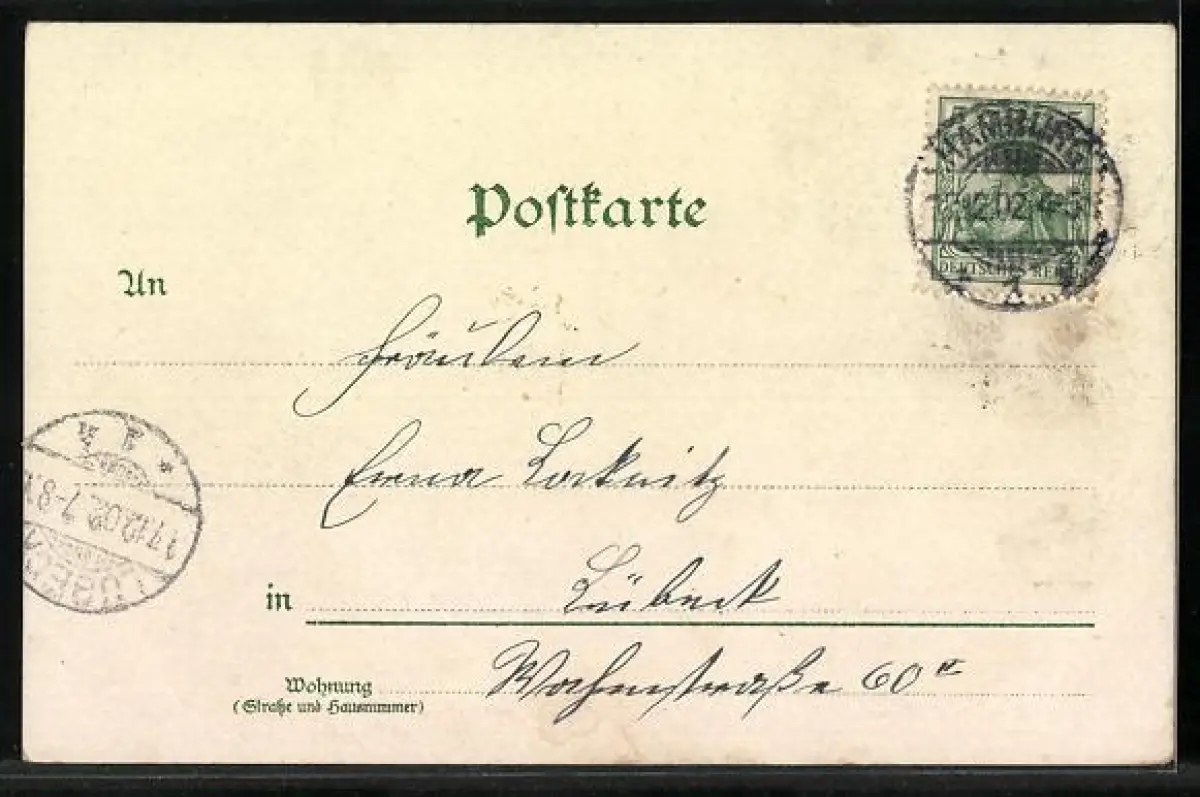 HAMBURG
12.02.
1
DEUTSCHES REICH
Postkarte
An
Fräulein
Erna Locknitz
17.12.02. 7-8
in Lübeck
Wohnung Wahmstraße 60 II
(Straße und Hausnummer)